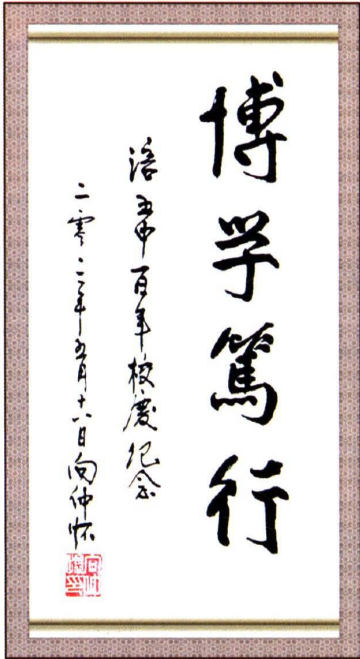 博学笃行
涪五中百年校庆纪念
二零一二年五月十六日向仲怀